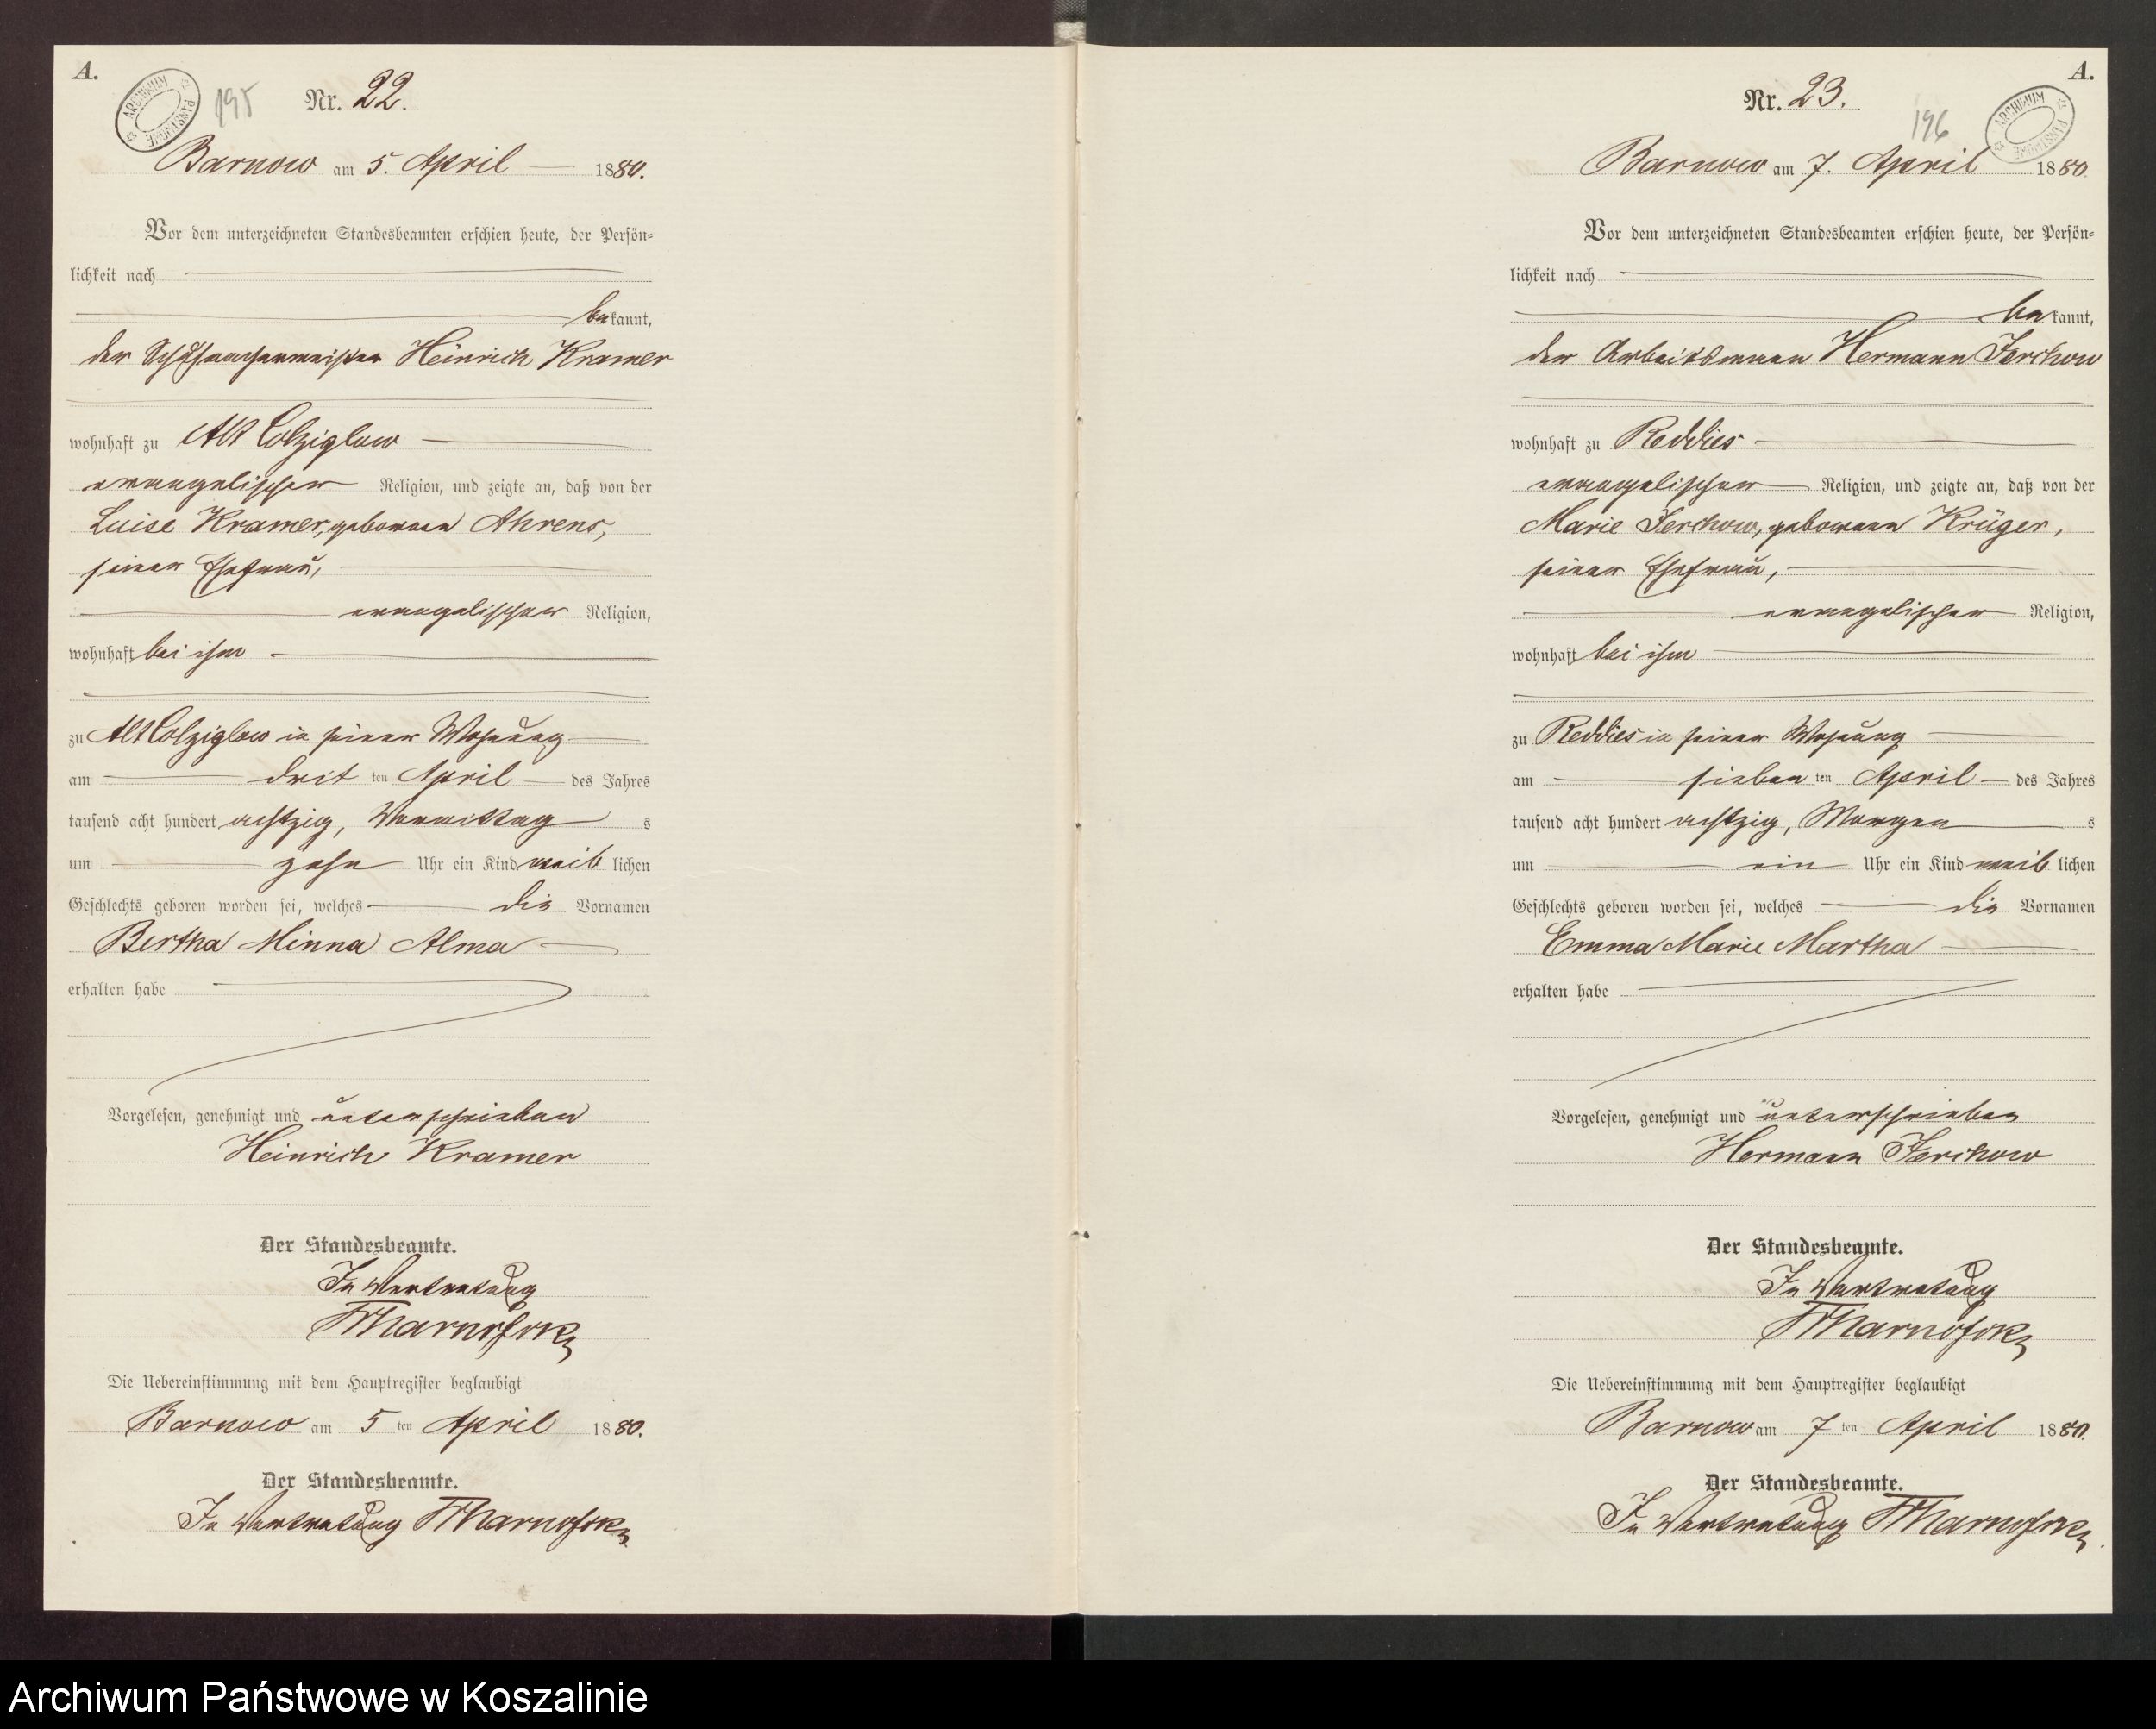 A.
ARCHIWUM PAŃSTWOWE
195
Nr. 22.
Barnow am 5. April 1880.
Vor dem unterzeichneten Standesbeamten erschien heute, der Persön=
lichkeit nach
bekannt,
der Schuhmachermeister Heinrich Kramer
wohnhaft zu Alt Colziglow
evangelischer Religion, und zeigte an, daß von der
Luise Kramer, geborenen Ahrens,
seiner Ehefrau,
evangelischer Religion,
wohnhaft bei ihm
zu Alt Colziglow in seiner Wohnung
am drit ten April des Jahres
tausend acht hundert achtzig, Vormittag s
um zehn Uhr ein Kind weib lichen
Geschlechts geboren worden sei, welches die Vornamen
Bertha Minna Alma
erhalten habe
Vorgelesen, genehmigt und unterschrieben
Heinrich Kramer
Der Standesbeamte.
In Vertretung
Die Uebereinstimmung mit dem Hauptregister beglaubigt
Barnow am 5 ten April 1880.
Der Standesbeamte.
In Vertretung
A.
Nr. 23.
196
ARCHIWUM PAŃSTWOWE
Barnow am 7. April 1880
Vor dem unterzeichneten Standesbeamten erschien heute, der Persön=
lichkeit nach
bekannt,
der Arbeitsmann Hermann Jerchow
wohnhaft zu Reddies
evangelischer Religion, und zeigte an, daß von der
Marie Jerchow, geborenen Krüger,
seiner Ehefrau,
evangelischer Religion,
wohnhaft bei ihm
zu Reddies in seiner Wohnung
am sieben ten April des Jahres
tausend acht hundert achtzig, Morgen s
um ein Uhr ein Kind weib lichen
Geschlechts geboren worden sei, welches die Vornamen
Emma Marie Martha
erhalten habe
Vorgelesen, genehmigt und unterschrieben
Hermann Jerchow
Der Standesbeamte.
In Vertretung
Die Uebereinstimmung mit dem Hauptregister beglaubigt
Barnow am 7 ten April 1880.
Der Standesbeamte.
In Vertretung
Archiwum Państwowe w Koszalinie